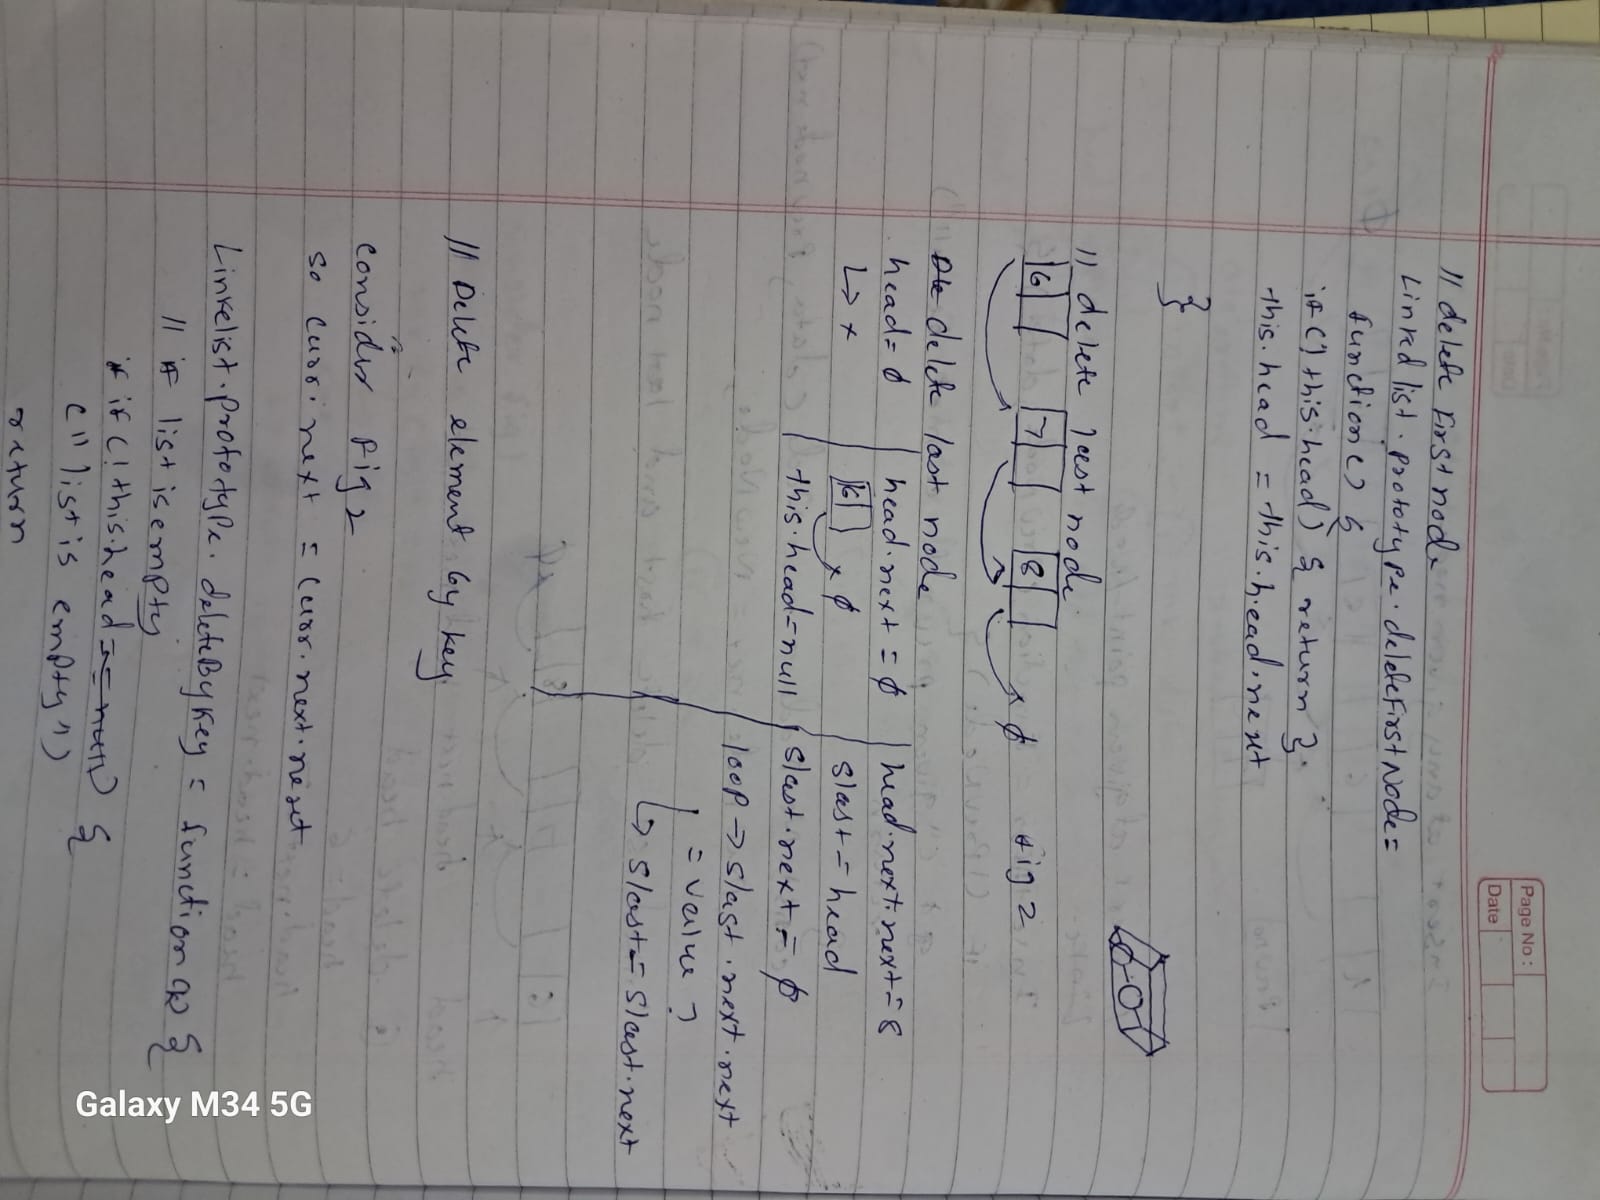 Page No :
Date
// delete First node
Linked list . prototype . deleteFirstNode =
function() {
if (! this.head) { return }
this.head = this.head.next
}
// delete last node
6 7 8 ∅ fig 2
Dle delete last node
head = ∅
↳ x
head.next = ∅
6 ∅
this.head = null
head.next.next = 8
slast = head
slast.next = ∅
loop → slast.next.next
= value ?
↳ slast = slast.next
// Delete element by key
consider fig 2
so curr.next = curr.next.next
Linkelist.prototype.deleteByKey = function {
// if list is empty
if (! this.head == null) {
(" list is empty ")
return
Galaxy M34 5G